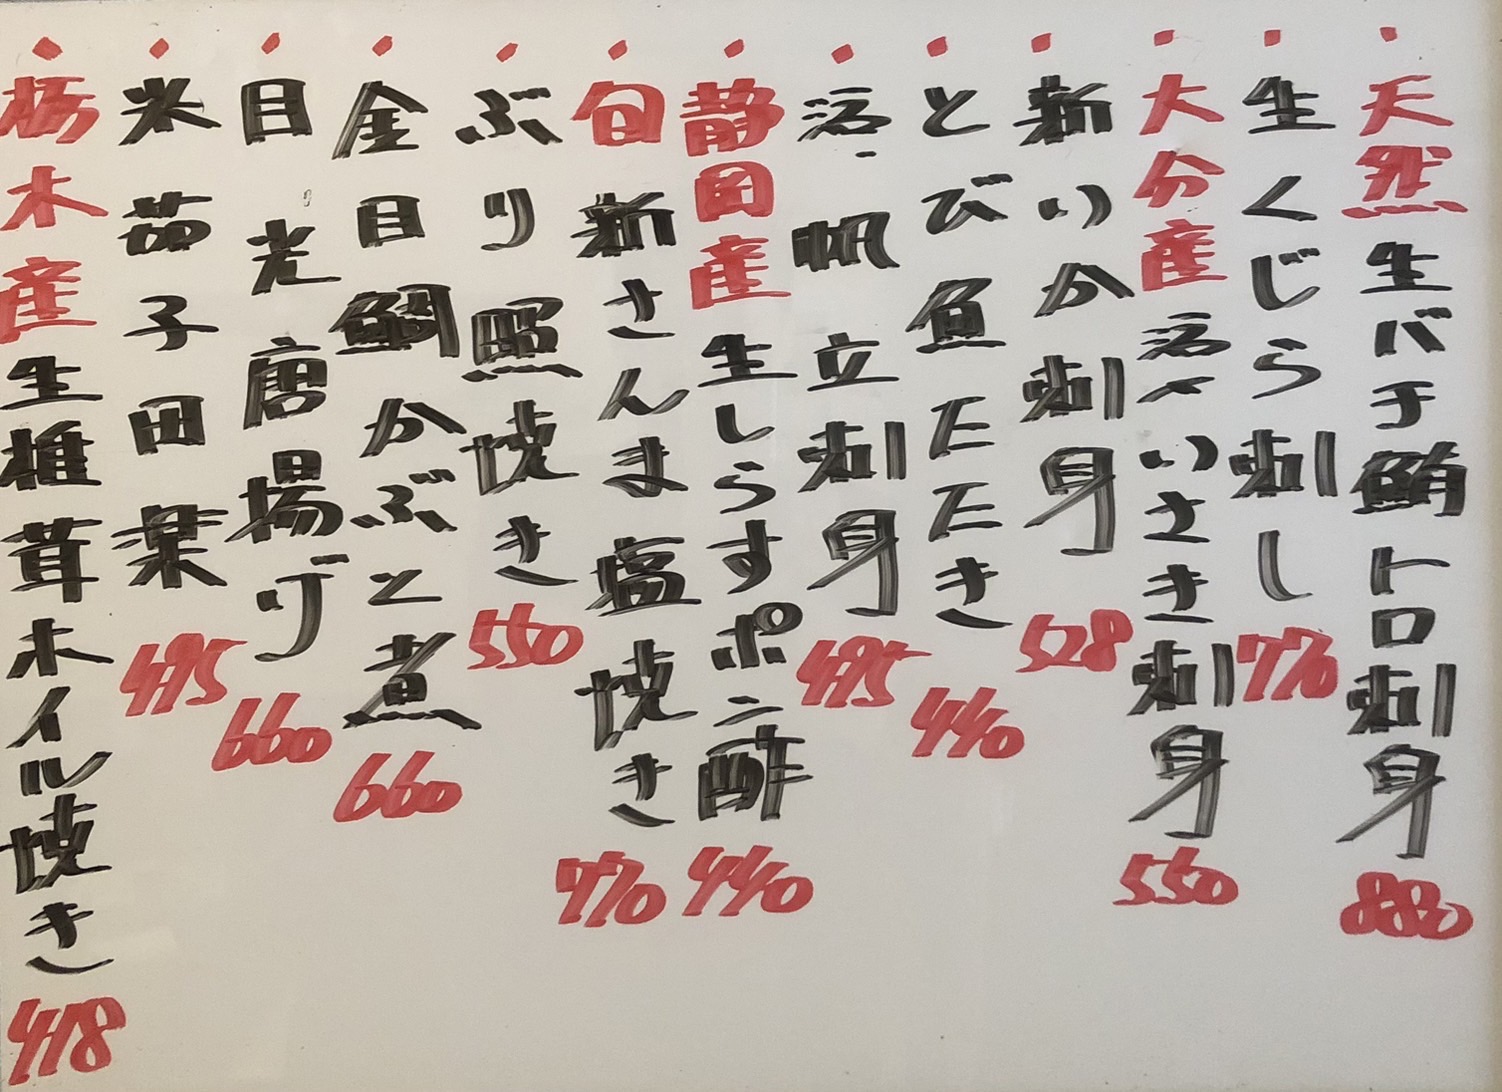 天然生バチ鮪トロ刺身 880
生くじら刺し 770
大分産活〆いさき刺身 550
新いか刺身 528
とび魚たたき 440
活帆立刺身 495
静岡産生しらすポン酢 440
旬新さんま塩焼き 770
ぶり照焼き 550
金目鯛かぶと煮 660
目光唐揚げ 660
米茄子田楽 495
栃木産生椎茸ホイル焼き 418